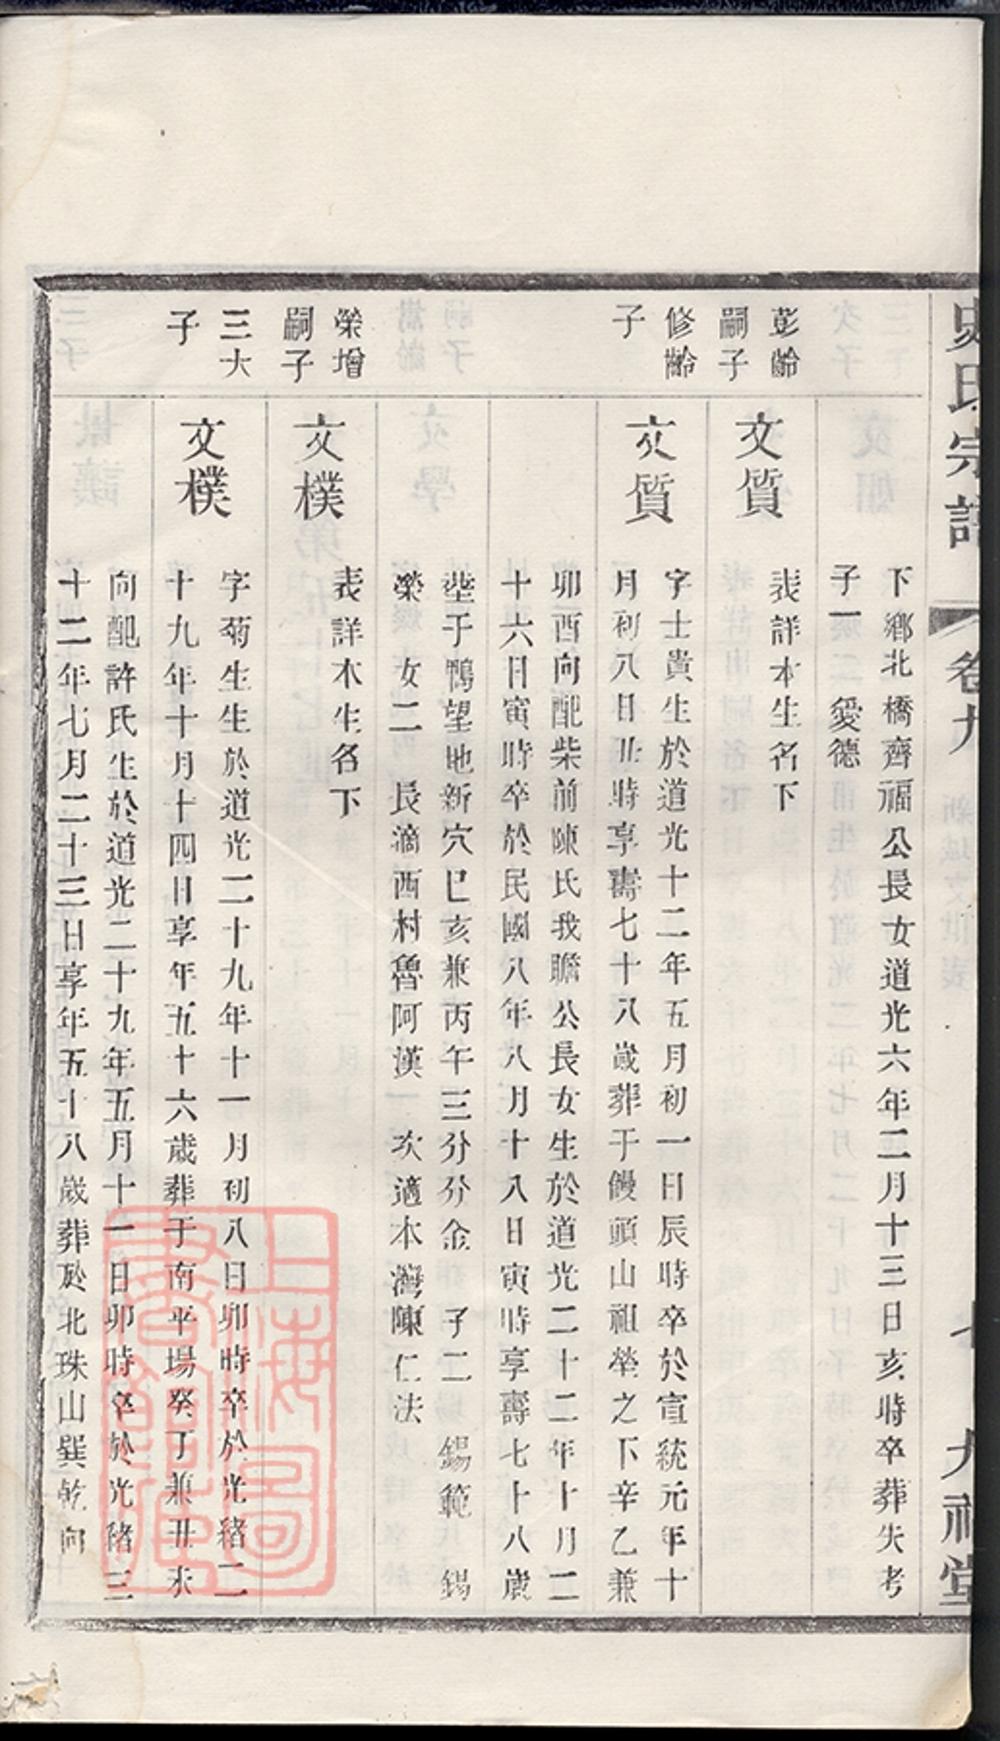 史氏宗譜
卷九
七
九福堂
下鄉北橋齊福公長女道光六年二月十三日亥時卒葬失考
子一 愛德
彭齡
嗣子
文質
表詳本生名下
修齡
子
文質
字士貴生於道光十二年五月初一日辰時卒於宣統元年十
月初八日丑時享壽七十八歲葬于饅頭山祖塋之下辛乙兼
卯酉向配柴前陳氏我瞻公長女生於道光二十二年十月二
十六日寅時卒於民國八年八月十八日寅時享壽七十八歲
塟于鴨望地新穴巳亥兼丙午三分分金 子二 錫範 錫
榮 女二 長適西村魯阿漢 次適本灣陳仁法
榮增
嗣子
文樸
表詳本生名下
三大
子
文樸
字菊生生於道光二十九年十一月初八日卯時卒於光緒二
十九年十月十四日享年五十六歲葬于南平場癸丁兼丑未
向配許氏生於道光二十九年五月十一日卯時卒於光緒三
十二年七月二十三日享年五十八歲葬於北珠山巽乾向
上海圖
書館藏